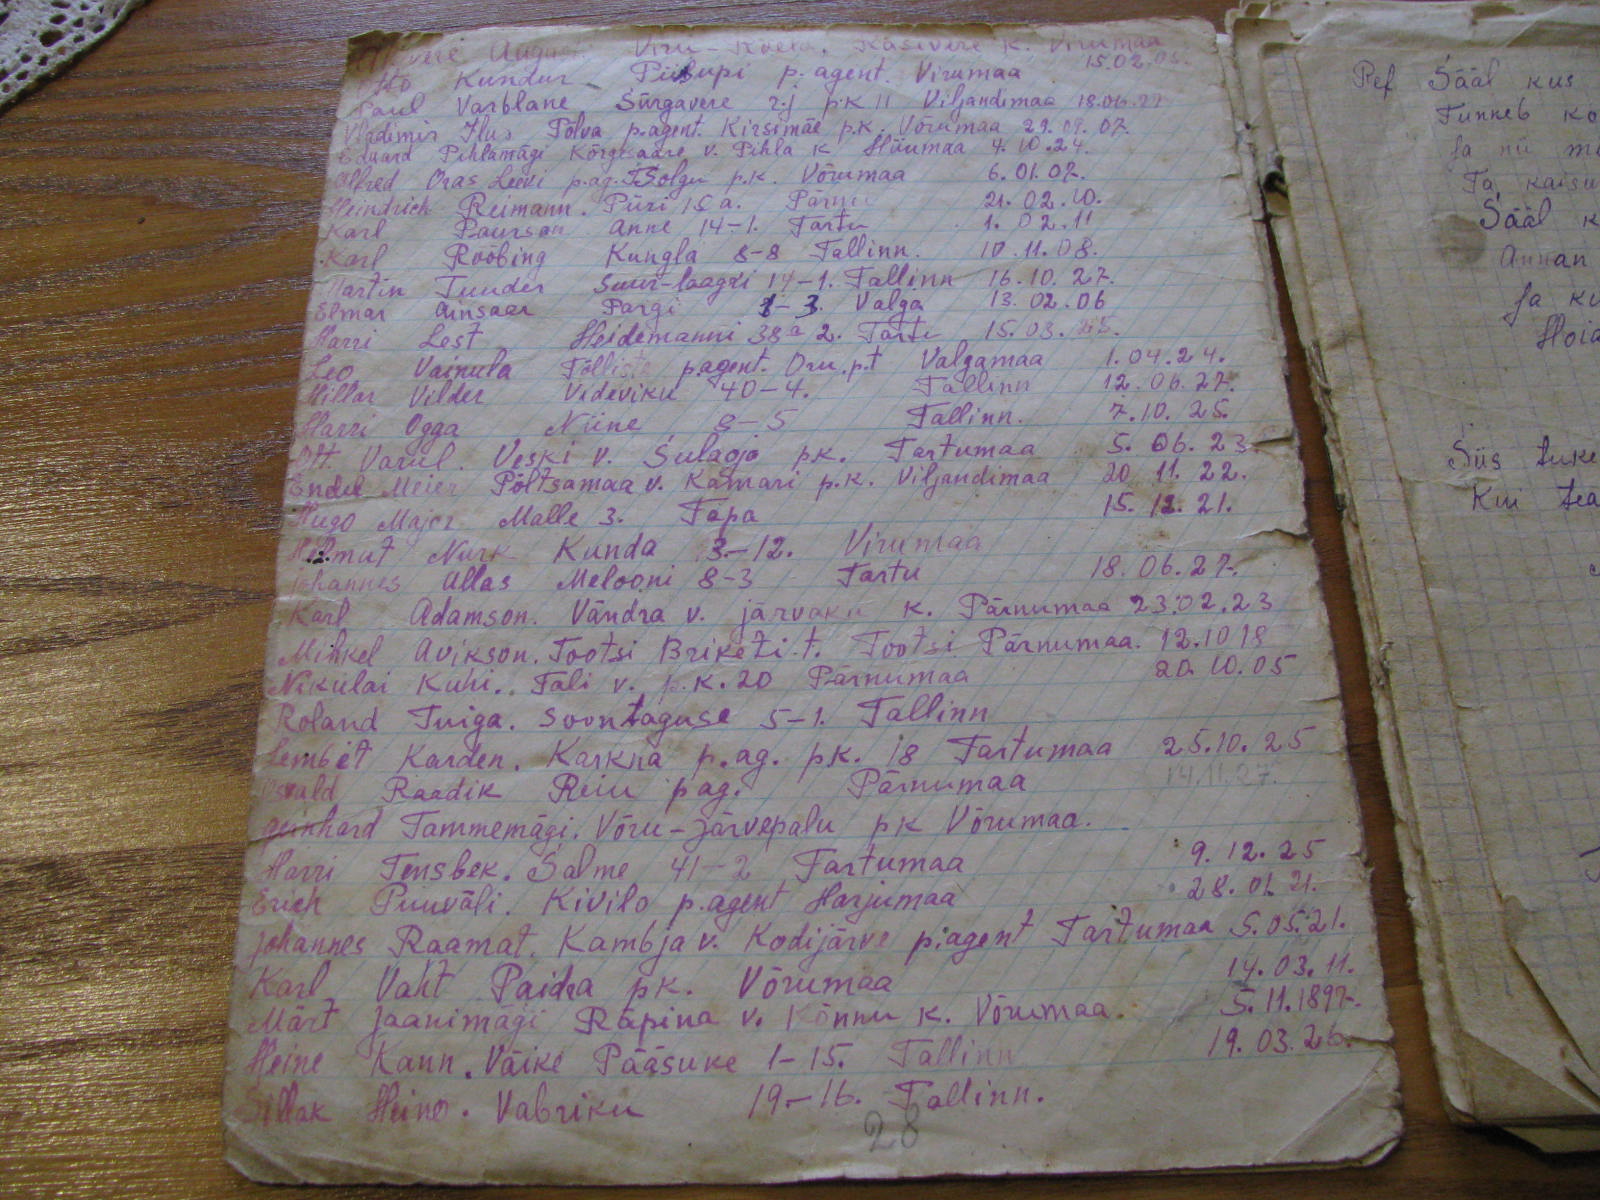 August Viru-Roela. Kasevere k. Virumaa 15.02.05.
Otto Kundur Piibupi p. agent. Virumaa
Paul Varblane Sürgavere r.j p.k 11 Viljandimaa 18.06.27
Vladimir Ilus Põlva p.agent. Kirsimäe p.k. Võrumaa 29.09.07.
Eduard Pihlamägi Kõrgesaare v. Pihla k Hiiumaa 4.10.24.
Alfred Oras Leevi p.ag. Tsolgu p.k. Võrumaa 6.01.07.
Heindrich Reimann. Püri 15a. Pärnu 21.02.10.
Karl Paurson Anne 14-1. Tartu 1.02.11
Karl Rööbing Kungla 8-8 Tallinn. 10.11.08.
Martin Tuuder Suur-laagri 14-1. Tallinn 16.10.27.
Elmar Ainsaar Pargi 1-3. Valga 13.02.06
Harri Lest Heidemanni 38a 2. Tartu 15.03.25.
Leo Vainula Tõlliste p.agent. Oru p.t Valgamaa 1.04.24.
Hillar Vilder Videviku 40-4. Tallinn 12.06.27.
Harri Ogga Niine 8-5 Tallinn. 7.10.25.
Ott Varul. Veski v. Sulaoja p.k. Tartumaa 5.06.23.
Endel Meier Põltsamaa v. Kamari p.k. Viljandimaa 20 11.22.
Hugo Major Malle 3. Tapa 15.12.21.
Helmut Nurk Kunda 3-12. Virumaa
Johannes Allas Melooni 8-3 Tartu 18.06.27.
Karl Adamson. Vändra v. järvaku k. Pärnumaa 23.02.23
Mihkel Avikson. Tootsi Briketi t. Tootsi Pärnumaa. 12.10 18
Nikulai Kuhi.. Tali v. p.k. 20 Pärnumaa 20.10.05
Roland Tuiga. Soontaguse 5-1. Tallinn
Lembit Karden. Karkna p.ag. p.k. 18 Tartumaa 25.10.25
Osvald Raadik Reiu p ag. Pärnumaa 14.11.27.
Geinhard Tammemägi. Võru-Järvepalu pk Võrumaa.
Harri Tensbek. Salme 41-2 Tartumaa 9.12.25
Erich Puuväli. Kivilo p.agent Harjumaa 28.01.21.
Johannes Raamat. Kambja v. Kodijärve p.agent Tartumaa 5.05.21.
Karl Vaht Paidra pk. Võrumaa 14.03.11.
Märt Jaanimägi Räpina v. Kõnnu k. Võrumaa. 5.11.1897.
Heine Kann. Väike Pääsuke 1-15. Tallinn 19.03.26.
Sillak Heino. Vabriku 19-16. Tallinn.
28
Ref Sääl kus
Tunneb
Ja nii
Ta kaisu
Sääl k
Annan
Ja ku
Hoia
Siis tuke
Kui tea